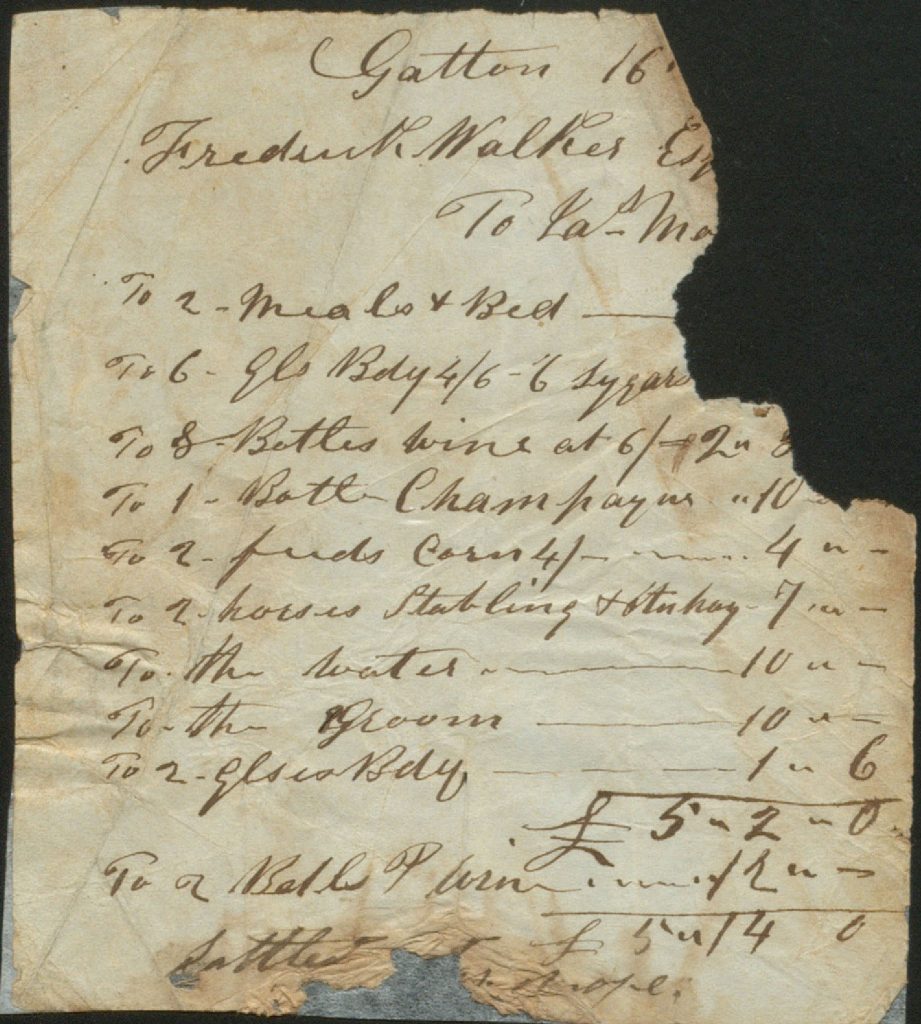 Gatton 16
Fredrick Walker Esq
To Jas Mo
To 2 - Meals & Bed —
To 6 - Gls Bdy 4/6 - 6 Sygars
To 8 - Bottles wine at 6/ = 2 " 8
To 1 - Bottle Champayne " 10 " -
To 2 - feeds Corn 4/ - 4 " -
To 2 - horses Stabling & 7 " -
To - the water — 10 " -
To - the Groom — 10 " -
To 2 - Glses Bdy — 1 " 6
£ 5 " 2 " 0
To 2 Bottls P Wine 12 " -
£ 5 " 14 0
Sattled